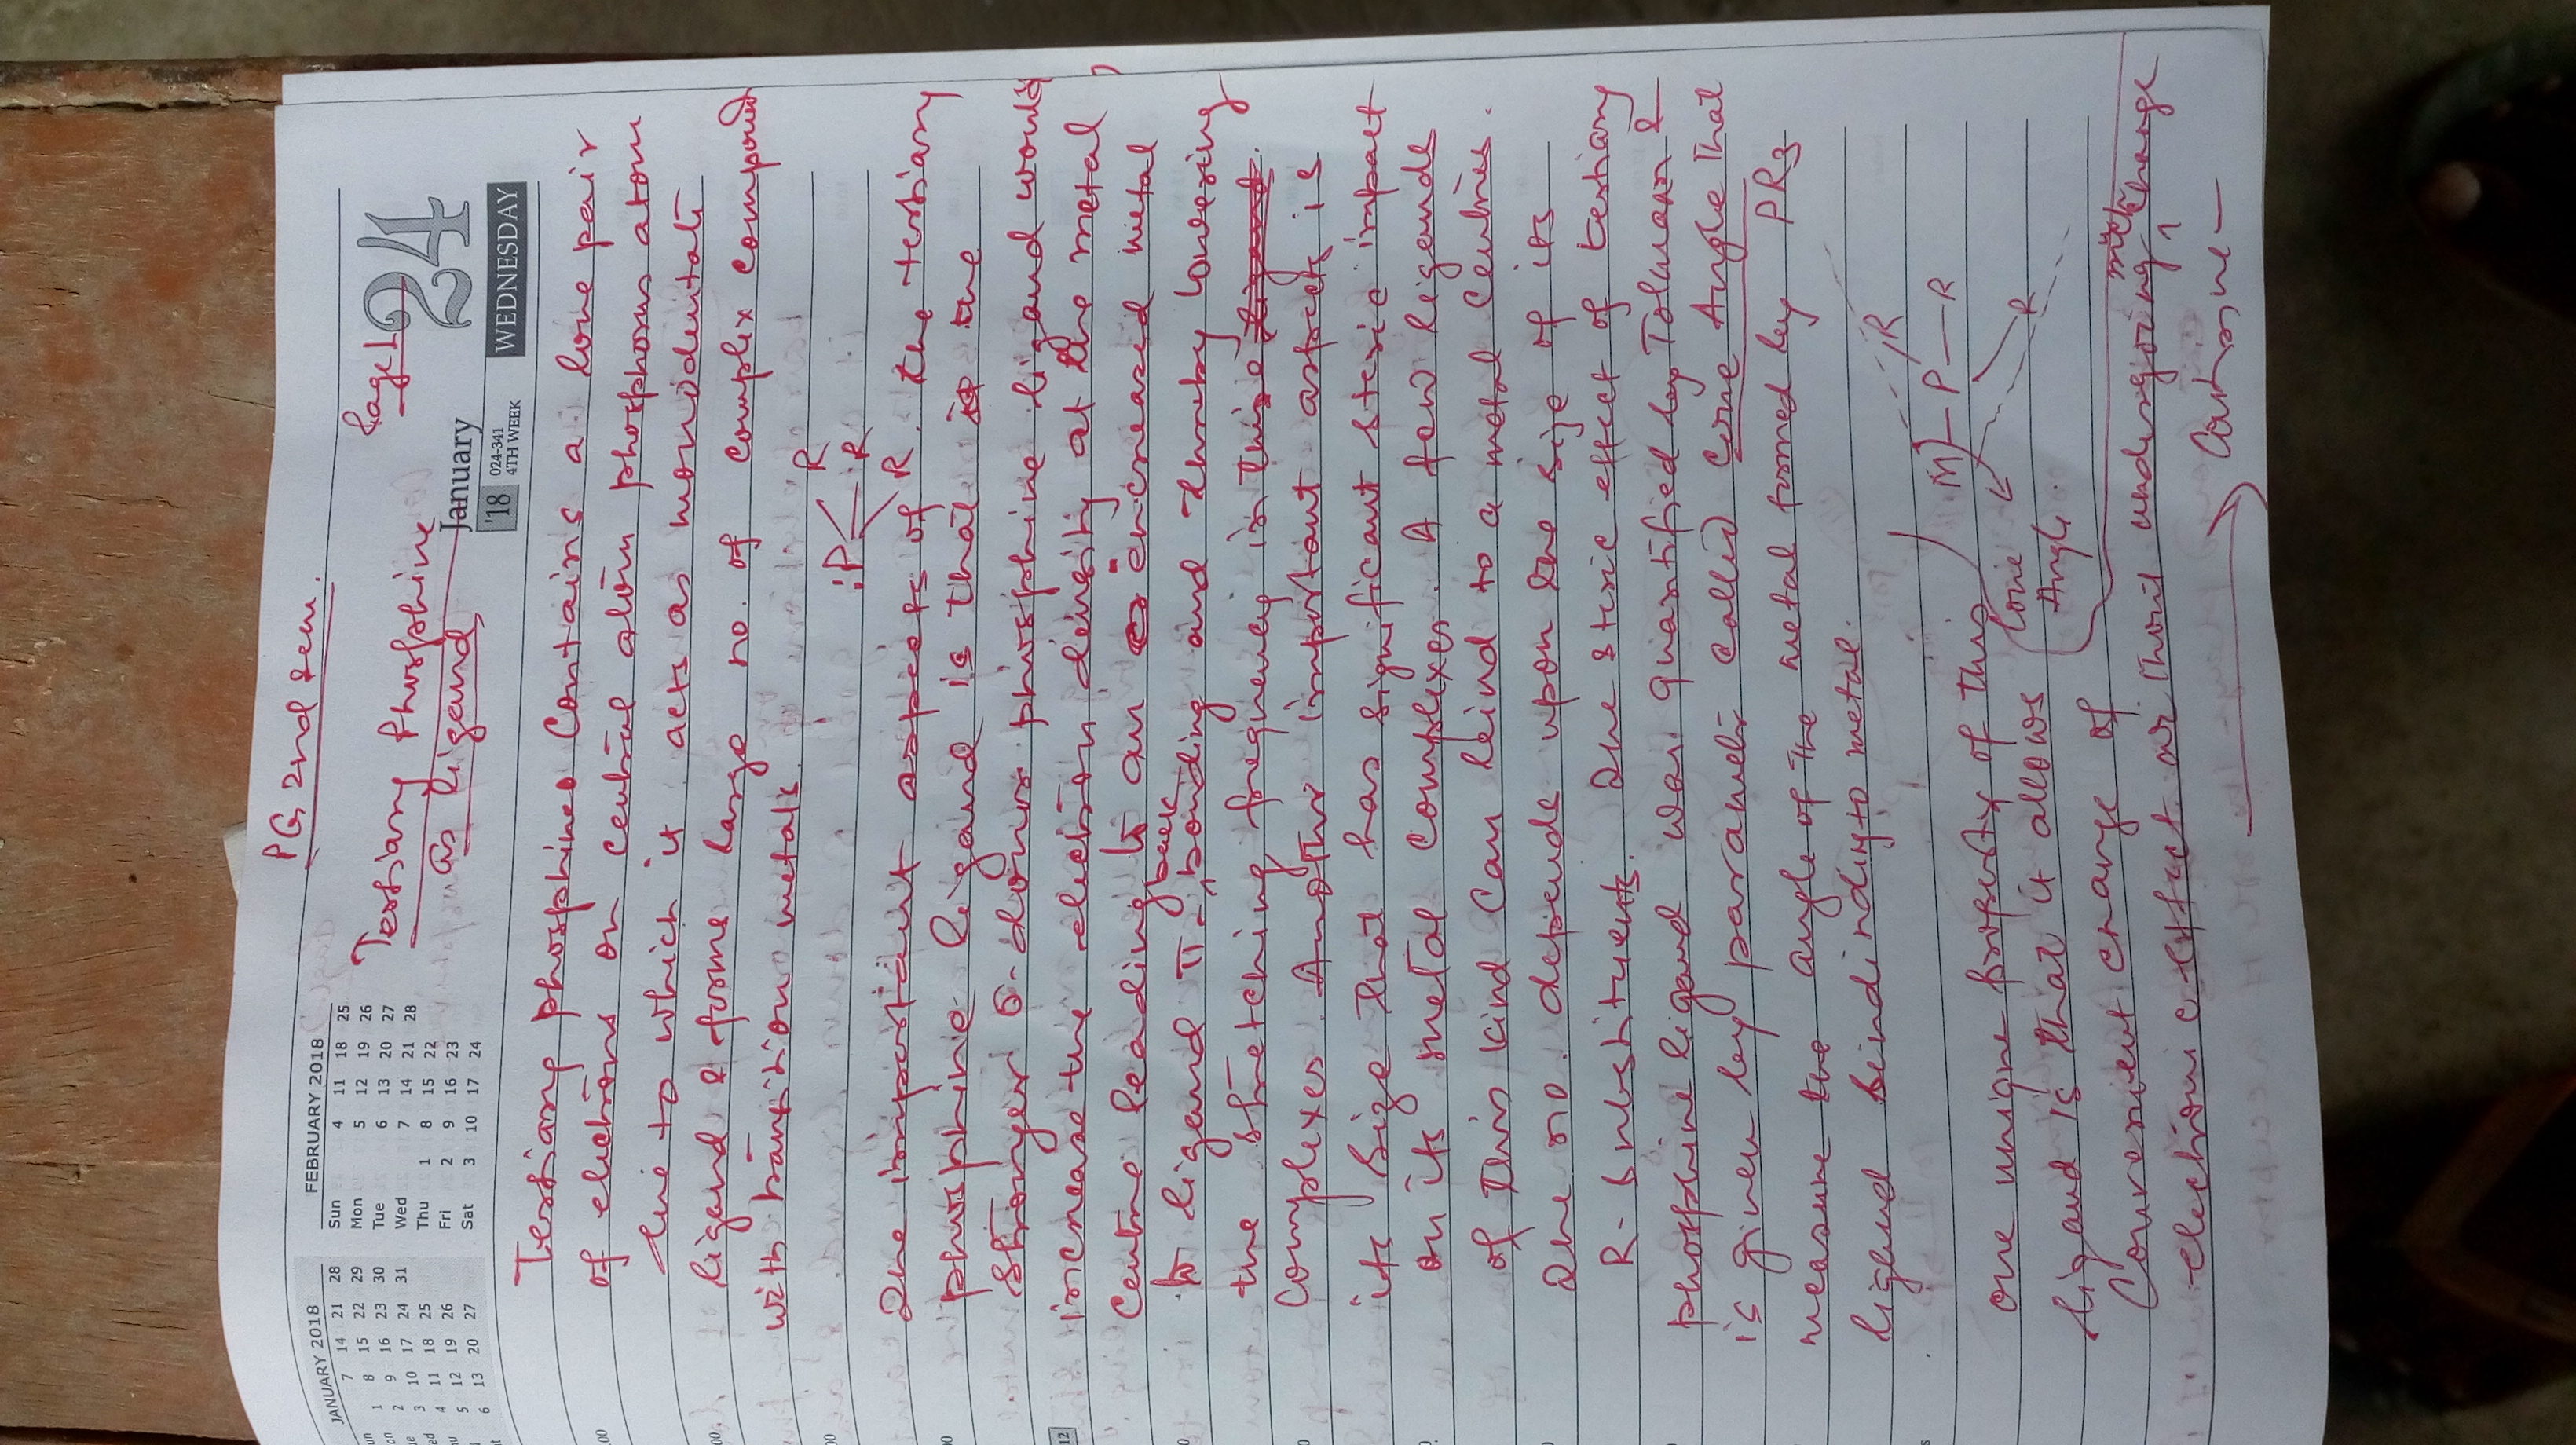 PG 2nd Sem.
Page 1
Tertiary Phosphine
as Ligand
January
24
'18
024-341
4TH WEEK
WEDNESDAY
JANUARY 2018
7 14 21 28
1 8 15 22 29
2 9 16 23 30
3 10 17 24 31
4 11 18 25
5 12 19 26
6 13 20 27
FEBRUARY 2018
Sun 4 11 18 25
Mon 5 12 19 26
Tue 6 13 20 27
Wed 7 14 21 28
Thu 1 8 15 22
Fri 2 9 16 23
Sat 3 10 17 24
Tertiary phosphine Contains a lone pair
of electrons on central atom phosphorus atom
due to which it acts as monodentate
ligand & forms large no. of complex compound
with transition metals.
:P R R R
One important aspects of the tertiary
phosphine ligand is that the
stronger σ-donor phosphine ligand would
increase the electron density at the metal
Centre leading to an encreased metal
to ligand π-back bonding and thereby lowering
the stretching frequency in this
Complexes. Another important aspect is
its size that has significant steric impact
on its metal complexes. A few ligands
of this kind can bind to a metal centres.
The no. depends upon the size of its
R-substituents. The steric effect of tertiary
phosphine ligand was quantified by Tolman &
is given by parameter called Cone Angle that
measure the angle of the metal formed by PR3
ligand binding to metal.
M P R
R
R
Cone
Angle
One unique property of this
ligand is that it allows
Convenient change of
electronic effect or without undergoing much change
Cont on me—